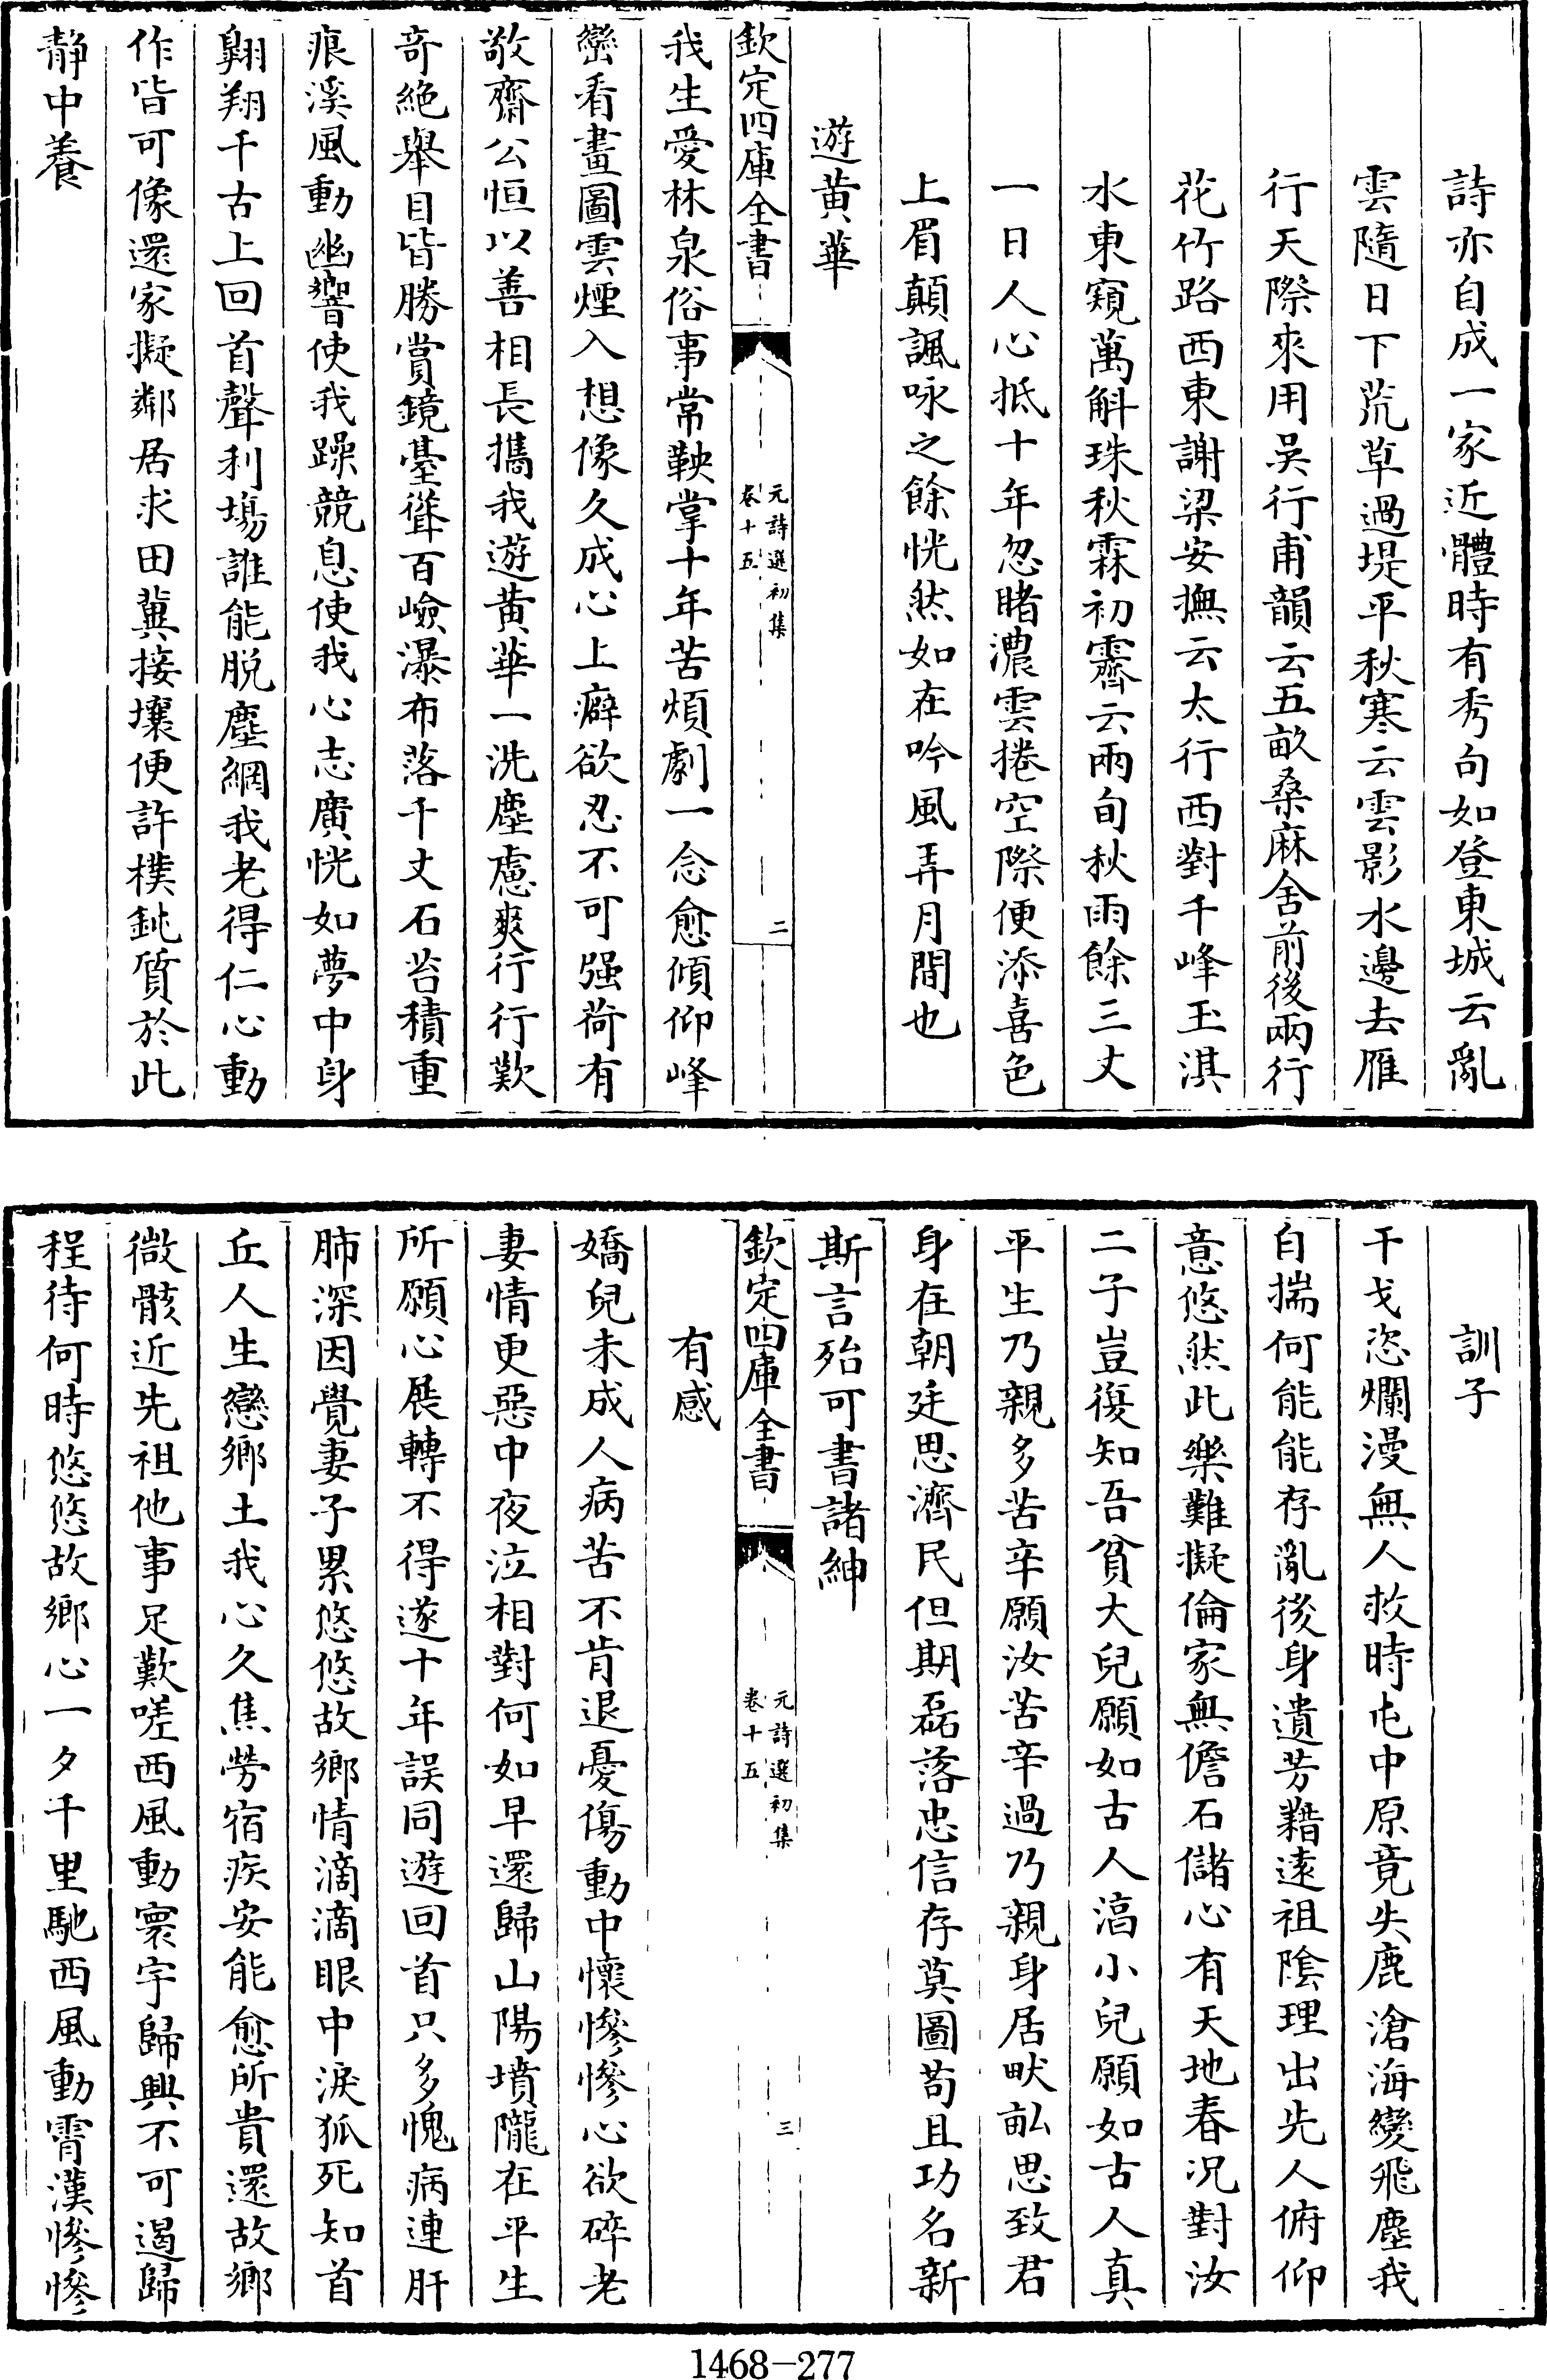 詩亦自成一家近體時有秀句如登東城云亂
雲隨日下荒草過堤平秋寒云雲影水邊去雁
行天際來用吳行甫韻云五畝桑麻舍前後兩行
花竹路西東謝梁安撫云太行西對千峰玉淇
水東窺萬斛珠秋霖初霽云兩旬秋雨餘三丈
一日人心抵十年忽睹濃雲捲空際便添喜色
上眉顛諷咏之餘恍然如在吟風弄月間也
遊黄華
欽定四庫全書
元詩選初集
卷十五
二
我生愛林泉俗事常鞅掌十年苦煩劇一念愈傾仰峰
巒看畫圖雲煙入想像久成心上癖欲忍不可强荷有
敬齋公恒以善相長攜我遊黄華一洗塵慮爽行行歎
奇絶舉目皆勝賞鏡臺聳百嶮瀑布落千丈石苔積重
痕溪風動幽響使我躁競息使我心志廣恍如夢中身
翺翔千古上回首聲利場誰能脱塵網我老得仁心動
作皆可像還家擬鄰居求田冀接壤便許樸鈍質於此
靜中養
訓子
干戈恣爛漫無人救時屯中原竟失鹿滄海變飛塵我
自揣何能能存亂後身遺芳藉遠祖陰理出先人俯仰
意悠然此樂難擬倫家無儋石儲心有天地春况對汝
二子豈復知吾貧大兒願如古人淳小兒願如古人真
平生乃親多苦辛願汝苦辛過乃親身居畎畝思致君
身在朝廷思濟民但期磊落忠信存莫圖苟且功名新
斯言殆可書諸紳
欽定四庫全書
元詩選初集
卷十五
三
有感
嬌兒未成人病苦不肯退憂傷動中懷慘慘心欲碎老
妻情更惡中夜泣相對何如早還歸山陽墳隴在平生
所願心展轉不得遂十年誤同遊回首只多愧病連肝
肺深因覺妻子累悠悠故鄉情滴滴眼中淚狐死知首
丘人生戀鄉土我心久焦勞宿疾安能愈所貴還故鄉
微骸近先祖他事足歎嗟西風動寰宇歸興不可遏歸
程待何時悠悠故鄉心一夕千里馳西風動霄漢慘慘
1468-277